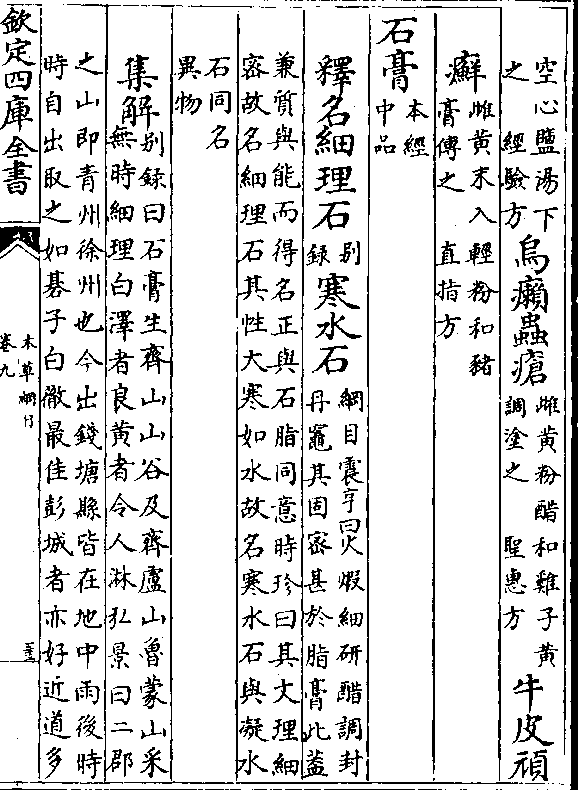 空心鹽湯下
之　經驗方
烏癩蟲瘡
雌黃粉醋和雞子黃
調塗之　聖惠方
牛皮頑
癬
雌黃末入輕粉和豬
膏傅之　直指方
石膏
本經
中品
釋名細理石
别
錄
寒水石
綱目震亨曰火煅細研醋調封
丹竈其固密甚於脂膏此葢
兼質與能而得名正與石脂同意時珍曰其文理細
密故名細理石其性大寒如水故名寒水石與凝水
石同名
異物
集解
别錄曰石膏生齊山山谷及齊盧山魯蒙山采
無時細理白澤者良黃者令人淋弘景曰二郡
之山即青州徐州也今出錢塘縣皆在地中雨後時
時自出取之如棊子白徹最佳彭城者亦好近道多
欽定四庫全書
本草綱目
卷九